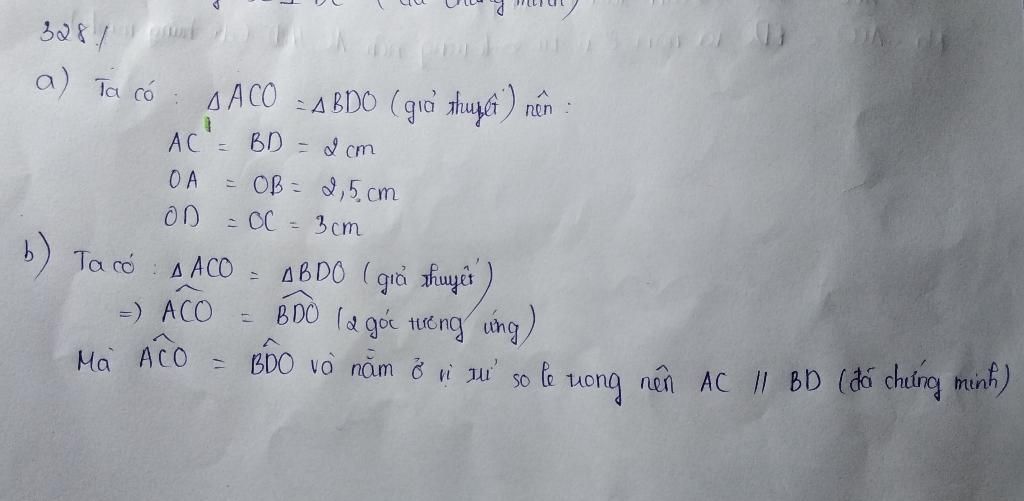 328/
a) Ta có : △ACO = △BDO (giả thuyết) nên :
AC = BD = 2 cm
OA = OB = 2,5 cm
OD = OC = 3 cm
b) Ta có : △ACO = △BDO (giả thuyết)
=) \widehat{ACO} = \widehat{BDO} (2 góc tương ứng)
Mà \widehat{ACO} = \widehat{BDO} và nằm ở vị trí so le trong nên AC // BD (đã chứng minh)